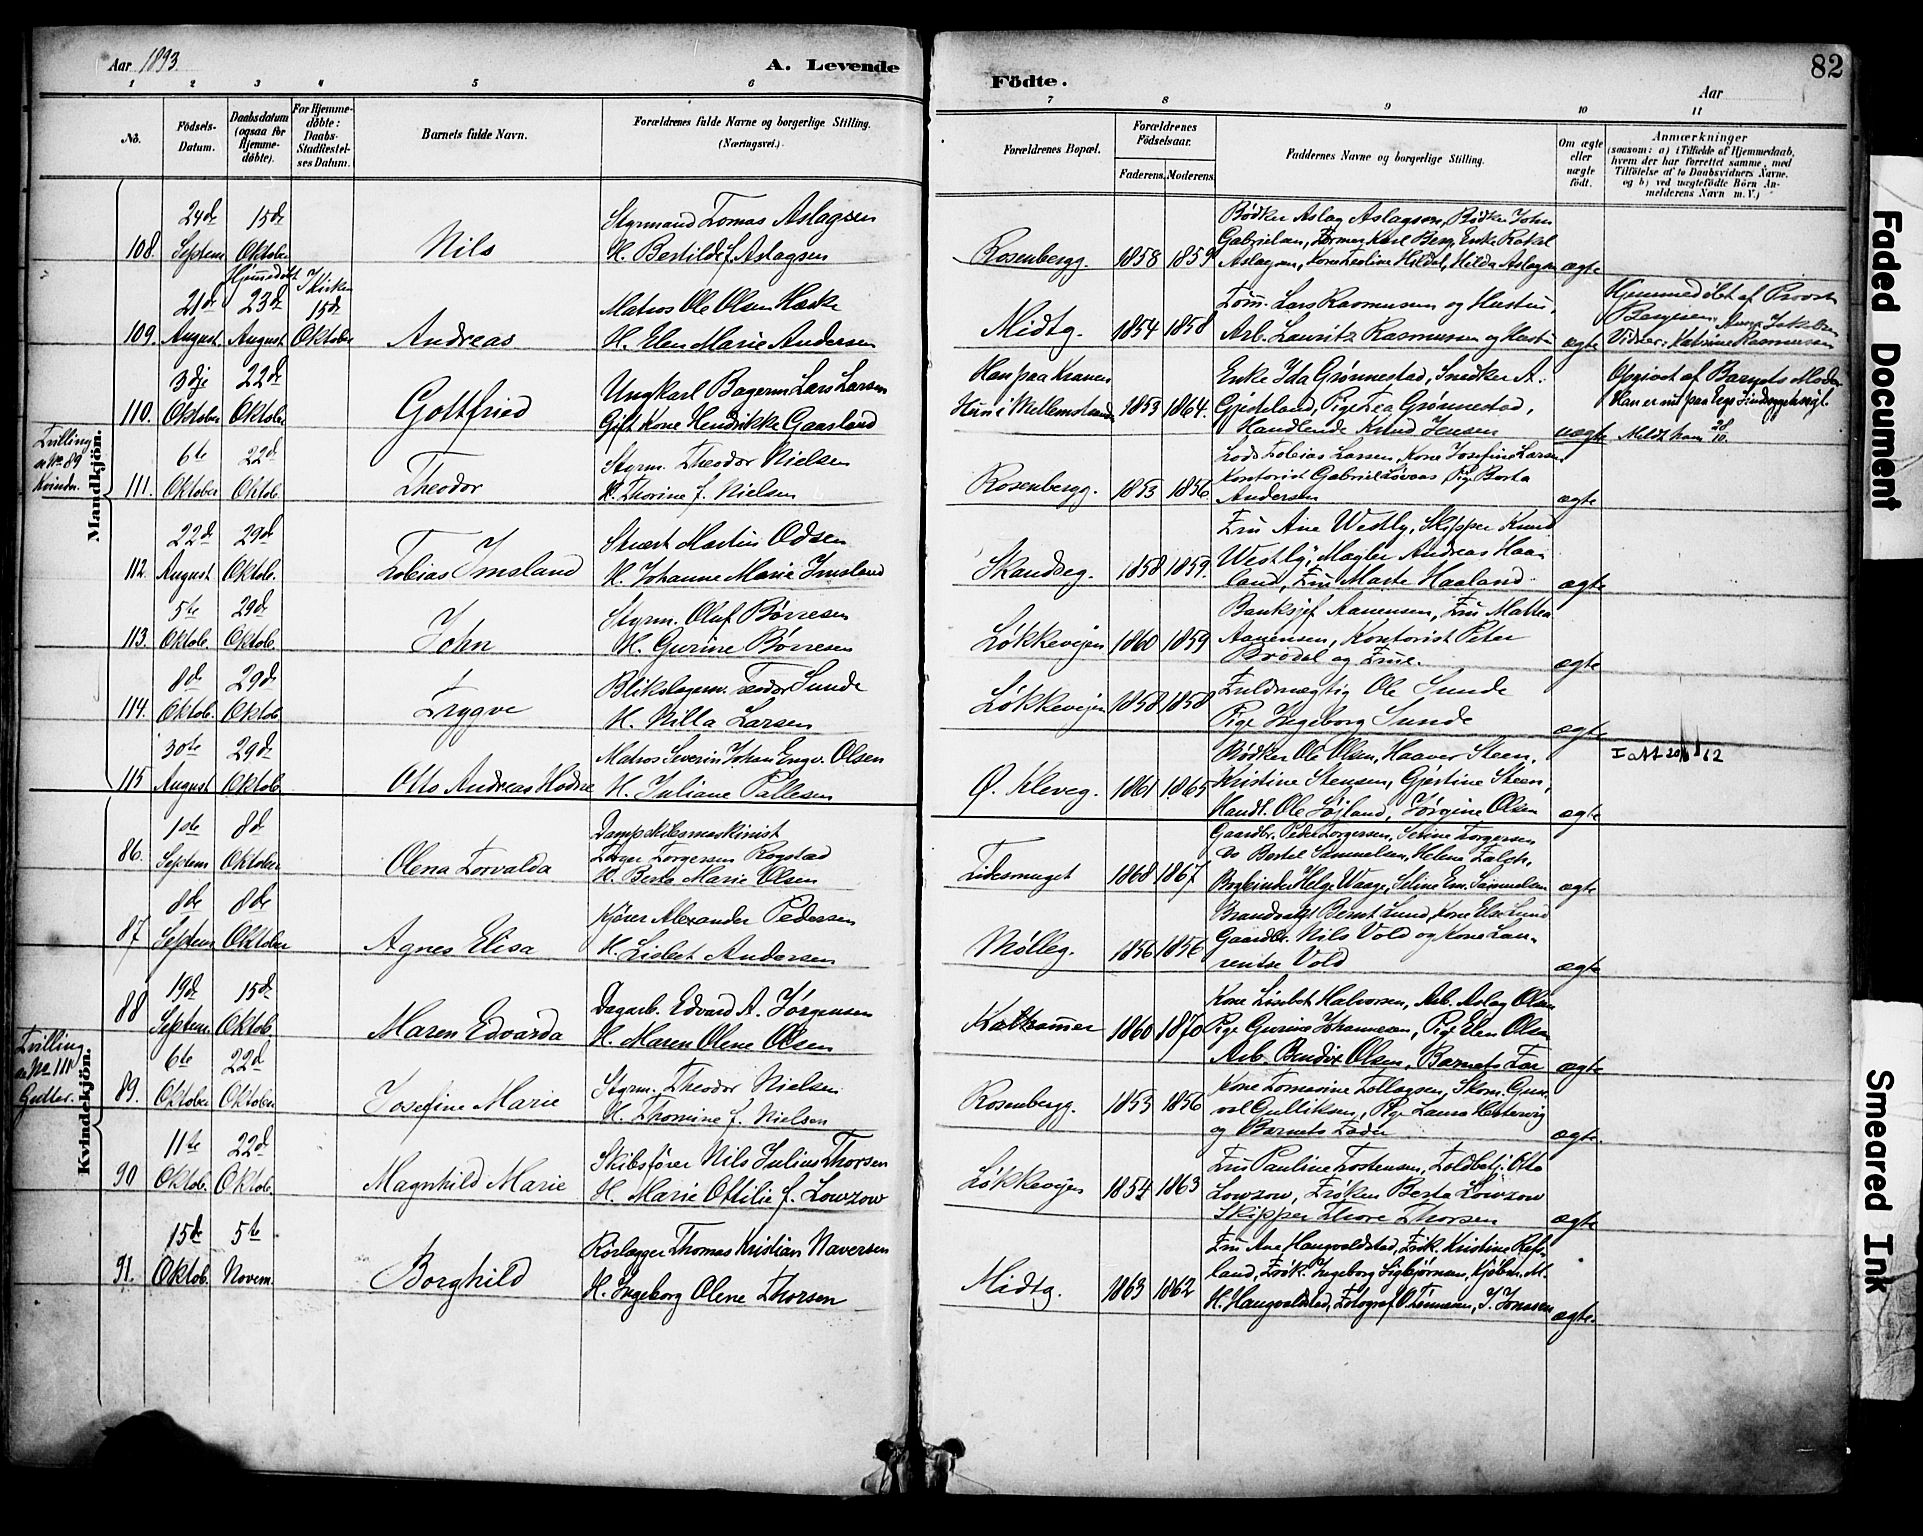 Aar 1893.
A. Levende
Födte.
82
Aar
1 2 3 4 5 6 7 8 9 10 11
No.
Födsels-
Datum.
Daabsdatum
(ogsaa for
Hjemme-
døbte).
For Hjemme-
døbte:
Daabs-
Stadfestel-
ses Datum.
Barnets fulde Navn.
Forældrenes fulde Navne og borgerlige Stilling.
(Næringsvei.)
Forældrenes Bopæl.
Forældrenes
Födselsaar.
Faderens. Moderens.
Faddernes Navne og borgerlige Stilling.
Om ægte
eller
uægte
født.
Anmærkninger
(saasom: a) i Tilfælde af Hjemmedaab,
hvem der har forrettet samme, med
Tilföielse af to Daabsvidners Navne.
og b) ved uægtefödte Börn An-
melderens Navn m. V.)
Mandkjön.
108. 24de Septem 15de Oktober
Nils
Styrmand Tomas Aslagsen
H. Bertilde f. Aslagsen
Rosenbergg. 1858 1859
Bødker Aslag Aslagsen, Bødker John
Gabrielsen, Former Karl Berg, Enke Rakel
Aslagsen, Kone Teoline Hildal, Hilda Aslagsen
ægte
109. 21de August Hjemmedøbt 23de August I Kirken 15de Oktober
Andreas
Matros Ole Olsen
H. Elen Marie Andersen
Midtg. 1854 1858
Tøm. Lars Rasmussen og Hustru,
Arb. Lauritz Rasmussen og Hustru
ægte
Hjemmedøbt af Provst
Vidner: Katrine Rasmussen
110. 3dje Oktober 22de Oktober
Gottfried
Ungkarl Bagerm. Lars Larsen
Gift Kone Hendrikke Gaasland
Han paa Kranen
Hun i Mellemstrand 1853 1864
Enke Ida Grønnestad, Snedker A.
Gjedeland, Pige Tea Grønnestad,
Handlende Knud Jensen
uægte
Opgivet af Barnets Moder
Meldt ham 28/10
Tvilling
a No 89
Kvinder.
111. 6te Oktober 22de Oktob.
Theodor
Styrm. Theodor Nielsen
H. Thorine f. Nielsen
Rosenbergg. 1853 1856
Lods Tobias Larsen, Kone Josefine Larsen,
Kontorist Gabriel Løvaas, Pige Berta
Andersen
ægte
112. 22de August 29de Oktob.
Tobias Imsland
Stuert Martin Odsen
H. Johanne Marie Imsland
Skandseg. 1858 1859
Fru Ane Westly, Skipper Knud
Westly, Mægler Andreas Haa-
land, Fru Marte Haaland
ægte
113. 5te Oktob. 29de Oktob.
John
Styrm. Oluf Børresen
H. Gurine Børresen
Løkkevejen 1860 1859
Banksjef Aanensen, Fru Mattea
Aanensen, Kontorist Peter
Brodal og Frue.
ægte
114. 8de Oktob. 29de Oktob.
Trygve
Blikslagerm. Teodor Sunde
H. Nilla Larsen
Løkkevejen 1858 1858
Fuldmægtig Ole Sunde
Pige Ingeborg Sunde
ægte
115 30te August 29de Oktob.
Otto Andreas
Matros Severin Johan Engv. Olsen
H. Juliane Pallesen
Ø. Kleveg. 1861 1865
Bødker Ole Olsen, Haaver Steen,
Kristine Stensen, Gjertine Steen,
Handl. Ole Løjland, Jørgine Olsen
ægte
Kvindekjön.
86. 1ste Septem 8de Oktober
Olena Torvalda
Dampskibsmaskinist
Torger Torgersen Rogstad
H. Berta Marie Olsen
1868 1867
Gaardbr. Peder Torgersen, Serine Torgersen
Do Bertel Samuelsen, Helene Falch,
Bogbinder Helge Waage, Seline Em. Samuelsen
ægte
87 8de Septem 8de Oktober
Agnes Elisa
Kjører Alexander Pedersen
H. Lisbet Andersen
Mølleg. 1856 1856
Brandvagt Bernt Lund, Kone Else Lund
Gaardbr. Nils Vold og Kone Lau-
rentse Vold
ægte
88 19de Septem. 15de Oktob.
Maren Edvarda
Dagarb. Edvard A. Jørgensen
H. Maren Olene Olsen
Kalhammer 1860 1870
Kone Lisebet Halvorsen, Arb. Aslag Olsen
Pige Gurine Johannesen, Pige Elen Olsen
Arb. Bendix Olsen, Barnets Far
ægte
Tvilling
a No 111
Gutter.
89. 6te Oktober 22de Oktober
Josefine Marie
Styrm. Theodor Nielsen
H. Thomine f. Nielsen
Rosenbergg. 1853 1856
Kone Tomasine Tollagsen, Skom. Gun-
val Gulliksen, Pige Laura Hettervig
og Barnets Fader
ægte.
90 11te Oktob. 22de Oktob.
Magnhild Marie
Skibsfører Nils Julius Thorsen
H. Marie Ottilie f. Lowzow
Løkkevejen 1854 1863
Fru Pauline Tostensen, Toldbetj. Otto
Lowzow, Frøken Berta Lowzow
Skipper Thore Thorsen
ægte
91. 15de Oktob. 5te Novem.
Borghild
Rørlægger Thomas Kristian Naversen
H. Ingeborg Olene Thorsen
Midtg. 1863 1862
Fru Ane Haugvaldstad, Frøk. Kristine Refs-
land, Frøk. Ingeborg Sigbjørnsen, Kjøbm. M.
H. Haugvaldstad, Fotograf O. Tønnesen, J. Jonassen
ægte.
Faded Document
Smeared Ink